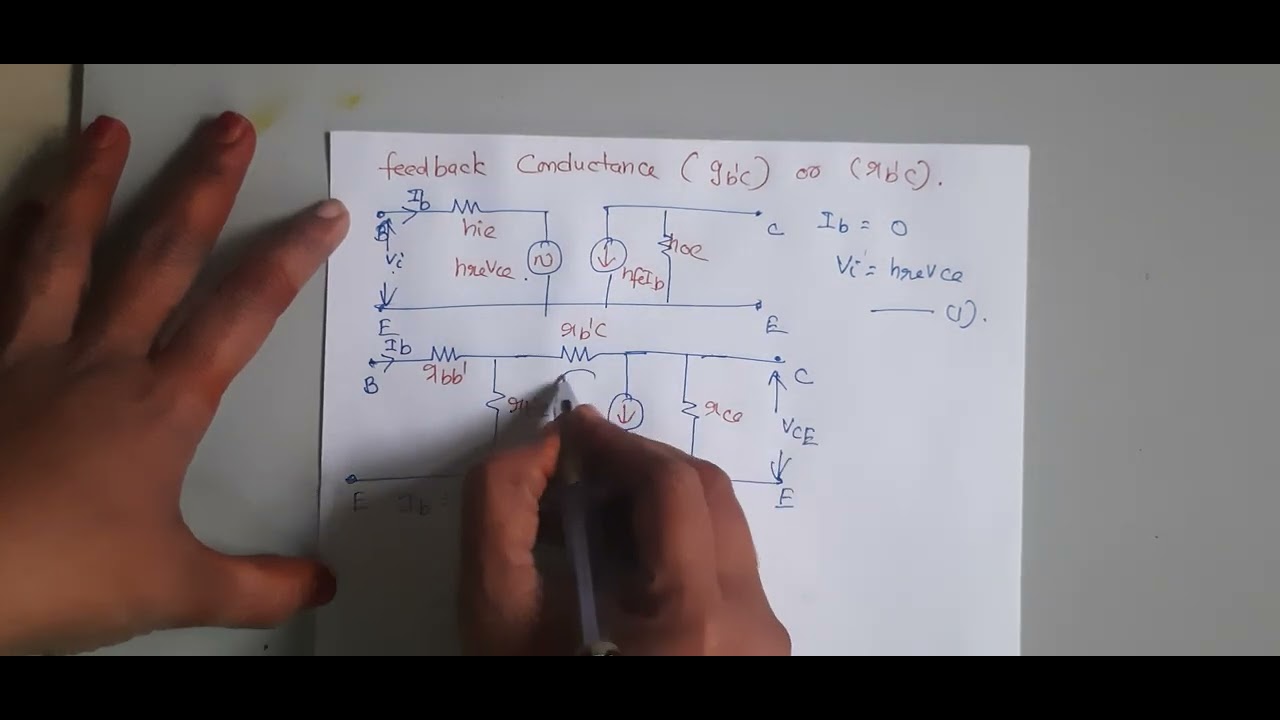 feedback Conductance (gb'c) or (rb'c).
Ib
B
hie
Vi
hreVce
hfeIb
hoe
C
E
E
Ib = 0
Vi = hreVce
(1).
Ib
rb'c
B
rbb'
rce
C
VCE
E
Ib =
E